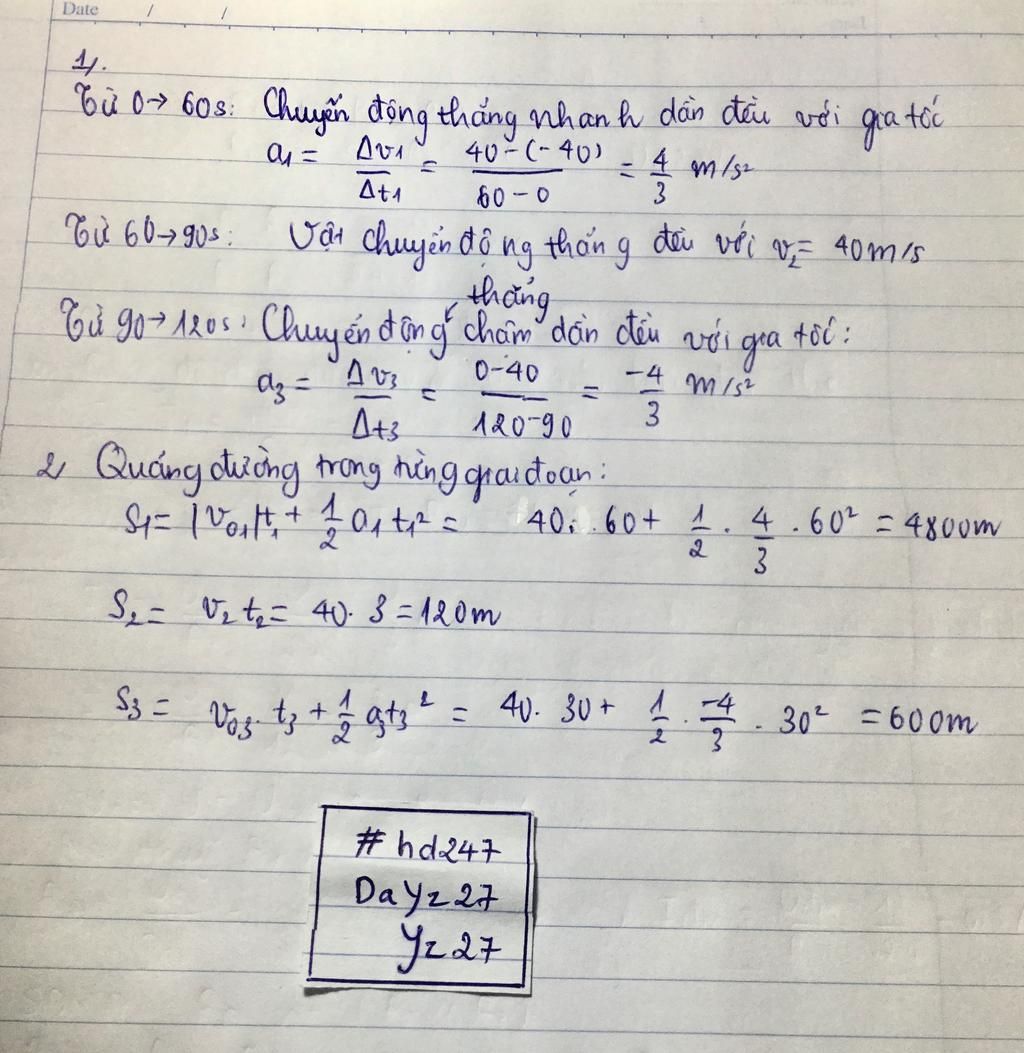 Date / /
1,
Từ 0→ 60s: Chuyển động thẳng nhanh dần đều với gia tốc
a₁ = Δv₁/Δt₁ = 40-(-40)/60-0 = 4/3 m/s²
Từ 60→90s: Vật chuyển động thẳng đều với v₂= 40m/s
thẳng
Từ 90→120s: Chuyển động chậm dần đều với gia tốc:
a₃ = Δv₃/Δt₃ = 0-40/120-90 = -4/3 m/s²
2, Quãng đường trong từng giai đoạn:
S₁= |v₀₁|t₁ + 1/2 a₁t₁² = 40. 60+ 1/2 . 4/3 . 60² = 4800m
S₂= v₂t₂= 40. 3 = 120m
S₃ = v₀₃. t₃ + 1/2 a₃t₃² = 40. 30+ 1/2 . -4/3 . 30² = 600m
#hd247
DaYz27
Yz27